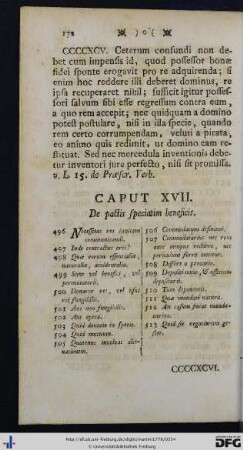 172
CCCCXCV. Ceterum confundi non de-
bet cum impensis id, quod possessor bonæ
fidei sponte erogavit pro re adquirenda; si
enim hoc reddere illi deberet dominus, re
ipsa recuperaret nihil; sufficit igitur posses-
sori salvum sibi esse regressum contra eum,
a quo rem accepit; nec quidquam a domino
potest postulare, nisi in illa specie, quando
rem certo corrumpendam, veluti a pirata,
eo animo quis redimit, ut domino eam re-
stituat. Sed nec mercedula inventionis debe-
tur inventori jure perfecto, nisi sit promissa.
v. L. 15. de Præscr. Verb.
CAPUT XVII.
De pactis speciatim beneficis.
496 Necessitas res
communicandi.
497 Inde contractus orti?
498 Quæ eorum essentialia,
naturalia, accidentalia.
499 Sunt vel benefici, vel
permutatorii.
500 Donatur res, vel usus
rei fungibilis.
501 Aut non fungibilis.
502 Aut opera.
503 Quid donatio in specie.
504 Quid mutuum.
505 Quatenus includat alie-
nationem.
506 Commodatum definitur.
507 Commodatarius nec rem
ante tempus reddere, nec
periculum ferre tenetur.
508 Differt a precario.
509 Depositarius, & officium
depositarii.
510 Tum deponentis.
511 Quæ mandati natura.
512 An casum ferat manda-
tarius.
513 Quid sit negotiorum ge-
stio.
CCCCXCVI.
DFG